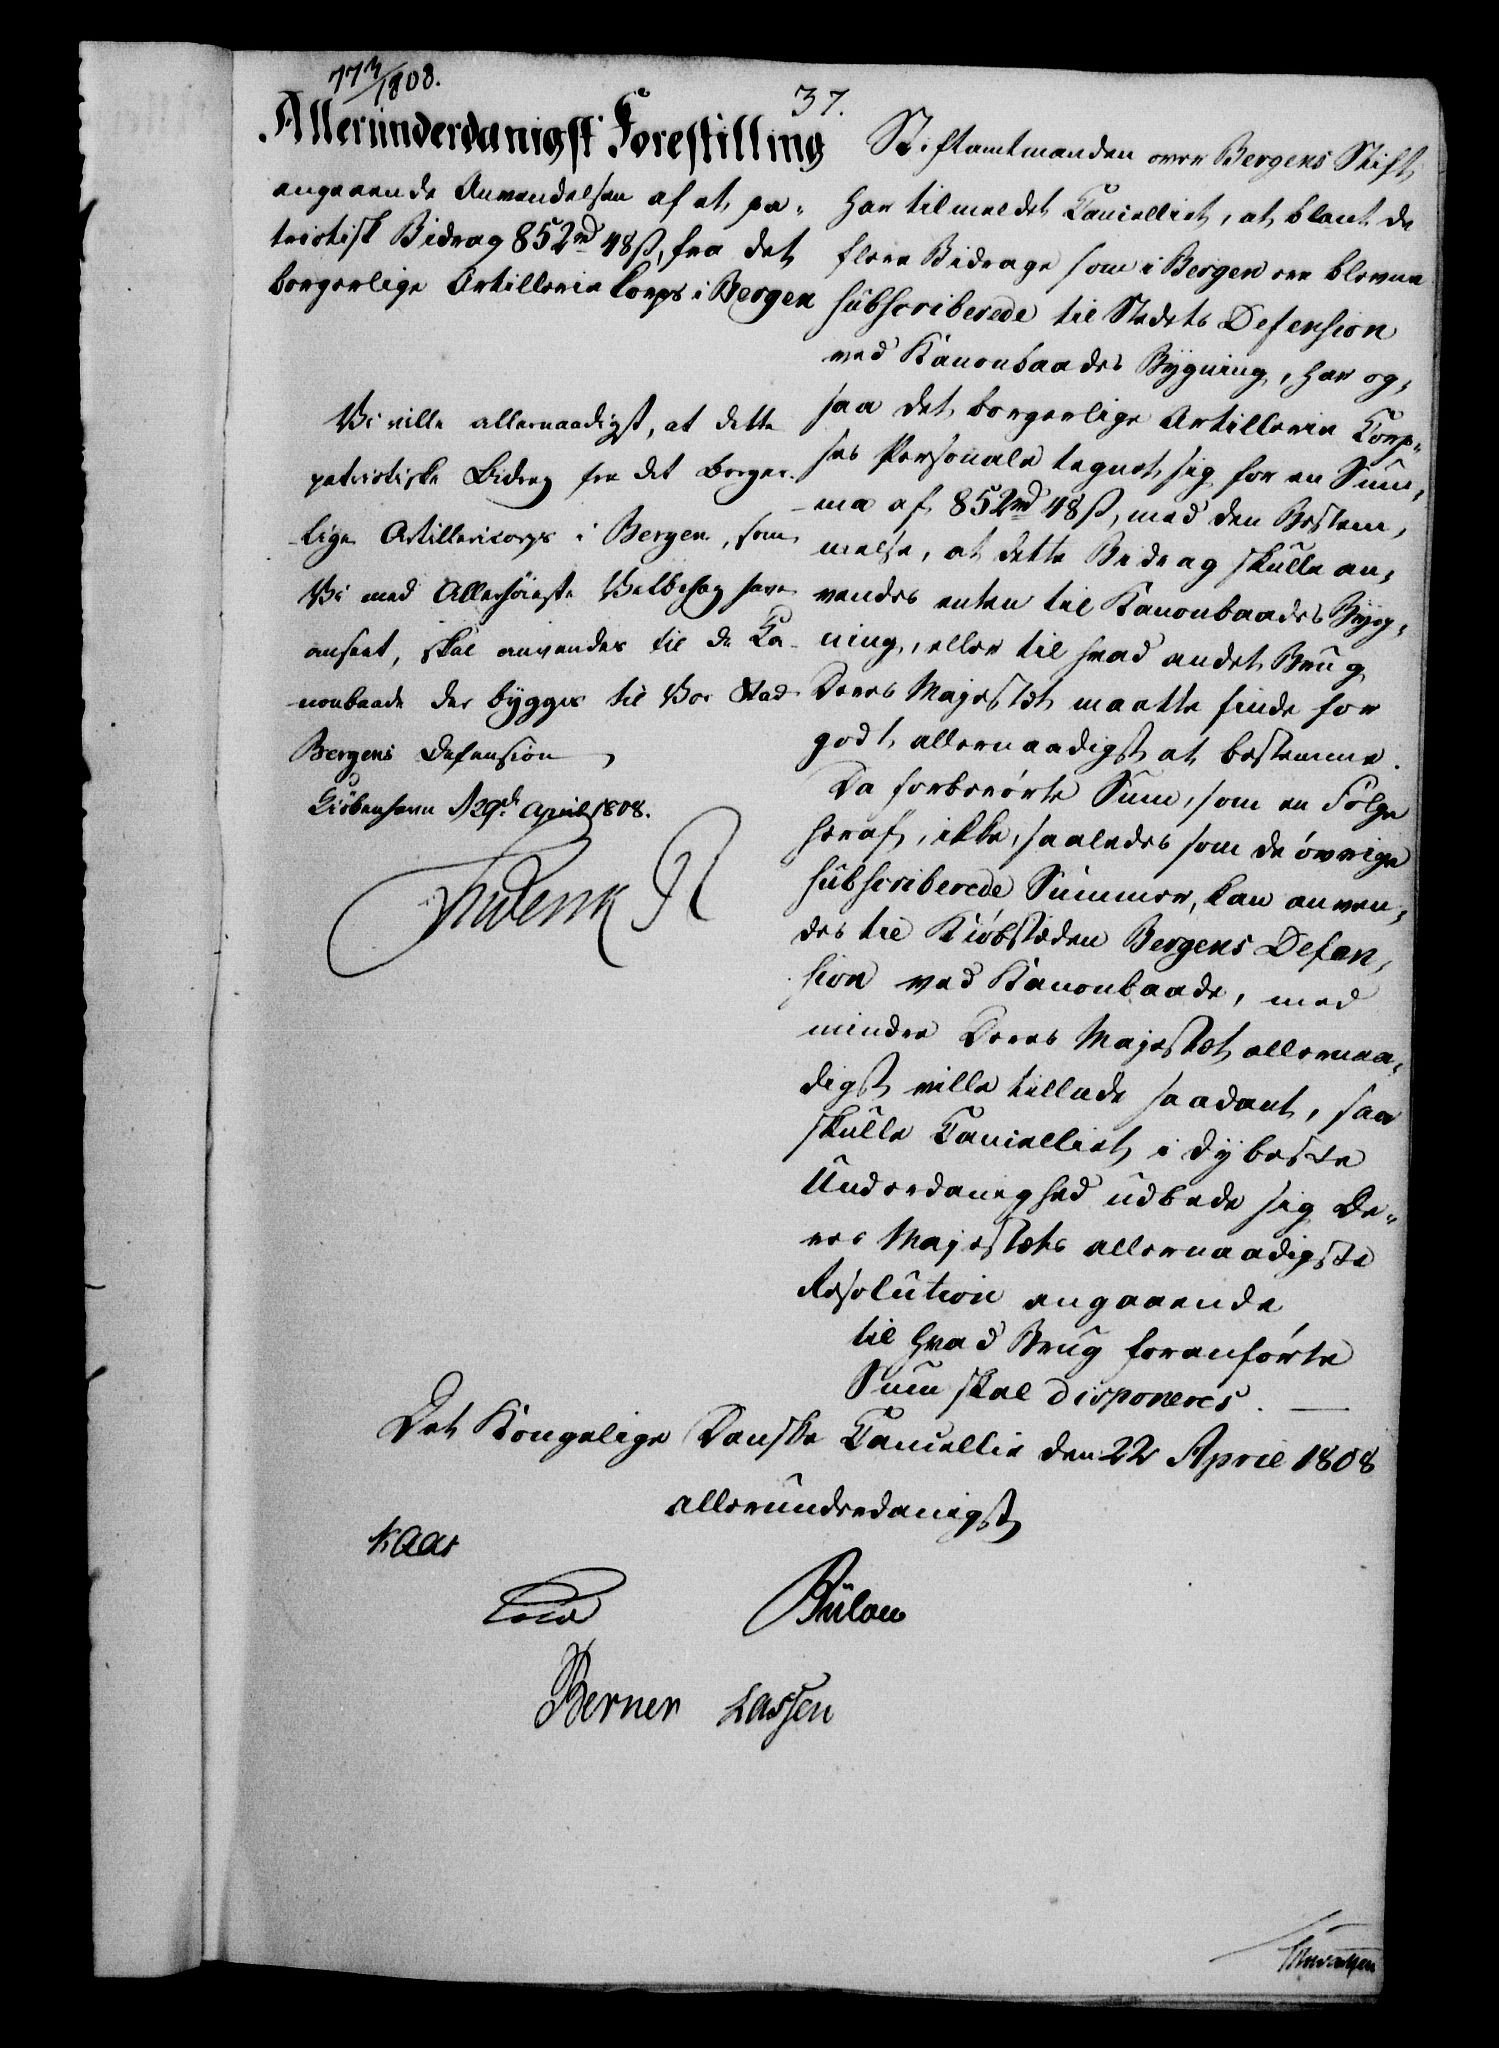 773/1808.
37.
Allerunderdanigst Forestilling
angaaende Anvendelsen af et pa-
triotisk Bidrag 852 rd 48 ß, fra det
borgerlige Artillerie Corps i Bergen
Vi ville allernaadigst, at dette
patriotiske Bidrag fra det borger-
lige Artillericorps i Bergen, som
Vi med Allerhöieste Velbehag have
anseet, skal anvendes til de Ka-
nonbaade der bygges til Vor Stad
Bergens Defension,
Kiöbenhavn d 29de April 1808.
Frederik R
Stiftamtmanden over Bergens Stift,
har tilmeldet Cancelliet, at blant de
flere Bidrage som i Bergen ere blevne
subscriberede til Stedets Defension
ved Kanonbaades Bygning, har og-
saa det borgerlige Artillerie Corp-
ses Personale tegnet sig for en Sum-
ma af 852 rd 48 ß, med den Bestem-
melse, at dette Bidrag skulle an-
vendes enten til Kanonbaades Byg-
ning, eller til hvad andet Brug
Deres Majestæt maatte finde for
godt allernaadigst at bestemme.
Da forberörte Sum, som en Fölge
heraf, ikke, saaledes som de övrige
subscriberede Summer, kan anven-
des til Kiöbstæden Bergens Defen-
sion ved Kanonbaade, med
mindre Deres Majestæt allernaa-
digst ville tillade saadant, saa
skulle Cancelliet i dybeste
Underdanighed udbede sig De-
res Majestæts allernaadigste
Resolution angaaende
til hvad Brug foranförte
Sum skal disponeres.
Det Kongelige Danske Cancellie den 22 April 1808
allerunderdanigst
Kaas
Cold Bülow
Berner Lassen